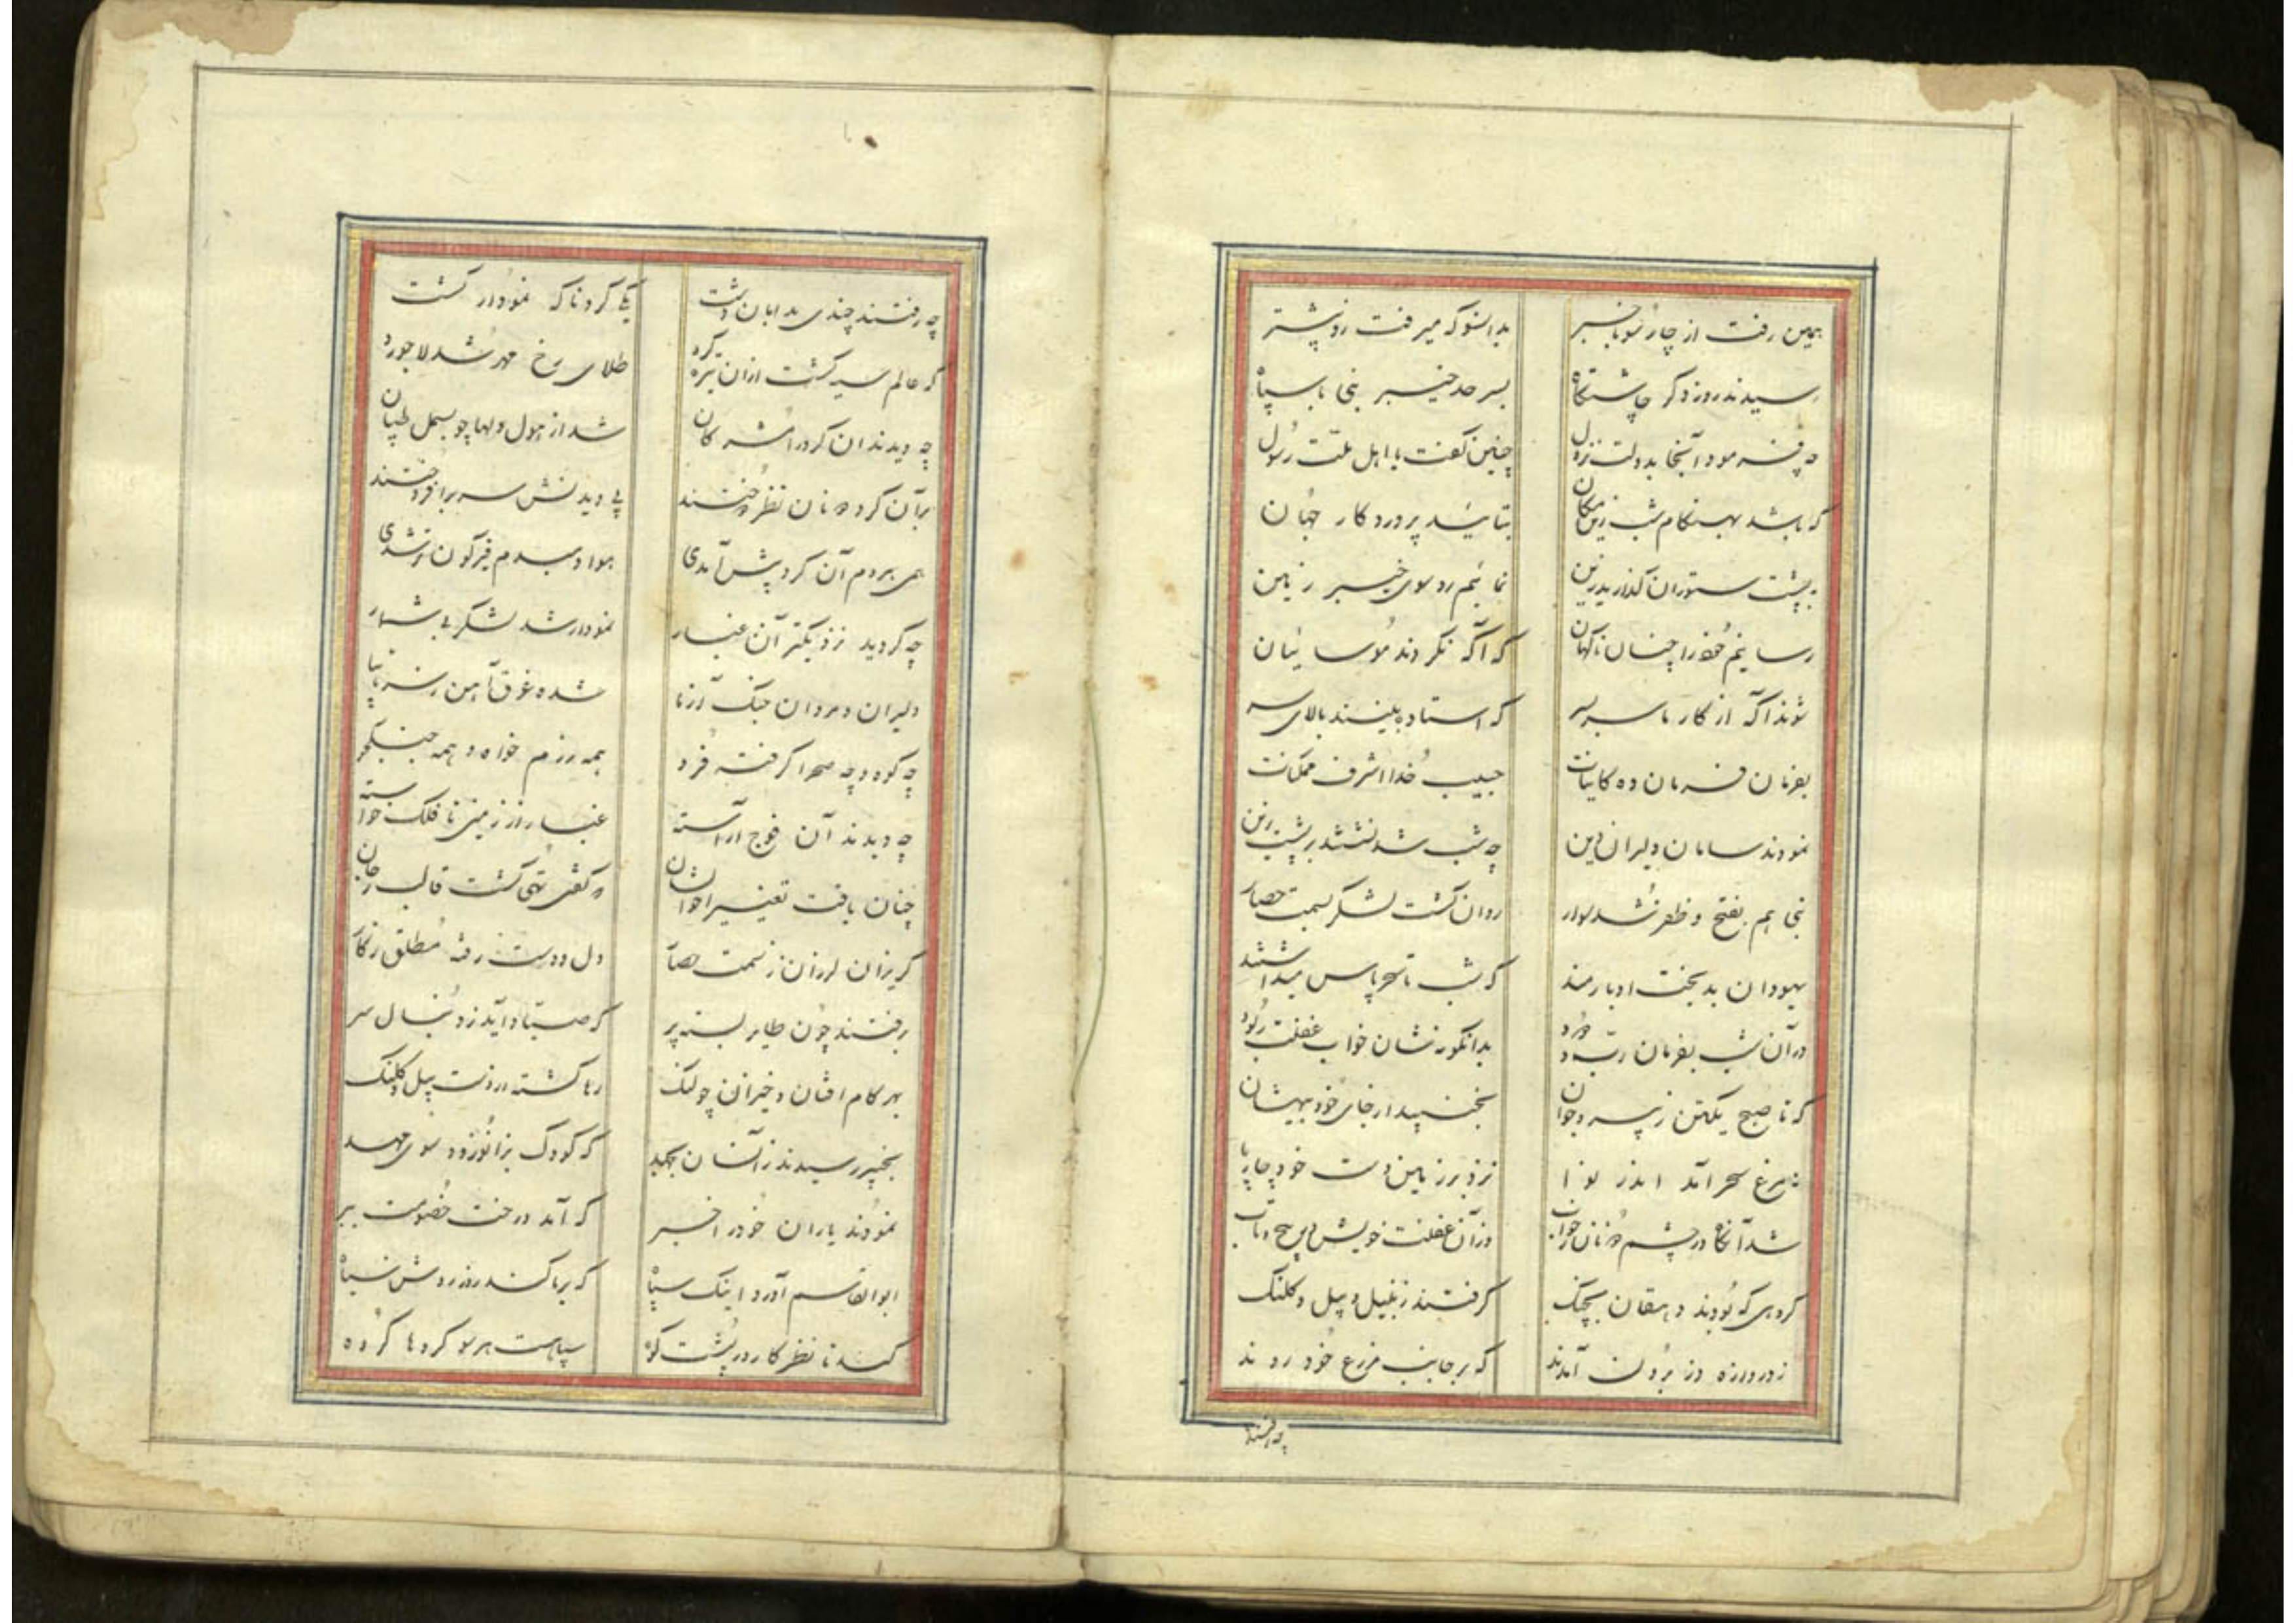 همین رفت از چار سو با خبر بدانسو که میرفت رو پیشتر
رسیدند روز دگر چاشتگاه بسرحد خیبر نبی با سپاه
چه فرمود آنجا بدولت نزول چنین گفت با اهل ملت رسول
که باشد بهنگام شب زین مکان بتایید پروردگار جهان
به پشت ستوران گذارید زین نمائیم رو سوی خیبر زمین
رسانیم خود را چنان ناگهان که آگه نگردند موسائیان
شوند آگه از کار ما سر بسر که استاده بینند بالای سر
بفرمان فرمان ده کاینات حبیب خدا اشرف ممکنات
نمودند سامان دلیران دین چه شب شد نشستند بر پشت زین
نبی هم بفتح و ظفر شد سوار روان گشت لشکر بسمت حصار
یهودان بدبخت ادبارمند که شب تا سحر پاس میداشتند
در آن شب بفرمان رب ودود بدانگونه شان خواب غفلت ربود
که تا صبح یکتن ز پیر و جوان نجنبید از جای خود بیهشان
نه مرغ سحر آمد اندر نوا نزد بر زمین دست خود چارپا
شد آنگاه در چشم شان خواب وز آن غفلت خویش در پیچ و تاب
گروهی که بودند دهقان بچنگ گرفتند زنبیل و بیل و کلنگ
ز دروازه دز برون آمدند که بر جانب مزرع خود روند
چه رفتند
چه رفتند چندی بدامان دشت یکی گرد ناگه نمودار گشت
که عالم سیه گشت ازان تیره گرد طلای رخ مهر شد لاجورد
چه دیدند ان گرد را مشرکان شد از هول دلها چو بسمل طپان
بر آن گرد نظر دوختند پی دیدنش سر برافروختند
همی هر دم آن گرد پیش آمدی هوا دمبدم قیرگون تر شدی
چه گردید نزدیکتر آن غبار نمودار شد لشکر بی شمار
دلیران و مردان جنگ آزما شده غرق آهن ز سر تا بپا
چه کوه و چه صحرا گرفته فرو همه رزم خواه و همه جنگجو
چه دیدند آن فوج آراسته غبار از زمین تا فلک خاسته
چنان یافت تغییر احوالشان که گفتی تهی گشت قالب ز جان
گریزان لرزان ز سمت حصار دل و دست رفته مطلق ز کار
برفتند چون طایر بسته پر که صیاد آید ز دنبال سر
بهر گام افتان و خیزان چو لنگ رها گشته از دست بیل و کلنگ
بخیبر رسیدند زانسان بجهد که کودک بزانو رود سوی مهد
نمودند یاران خود را خبر که آمد درخت خصومت ببر
ابوالقاسم آورد اینک سپاه که بر ما کند روز روشن سیاه
کند تا نظر کار در پشت کوه سپاهست هر سو گروها گروه